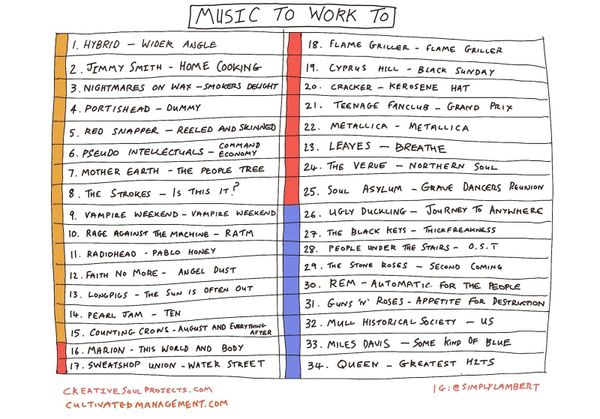 MUSIC TO WORK TO
1. HYBRID – WIDER ANGLE
2. JIMMY SMITH – HOME COOKING
3. NIGHTMARES ON WAX – SMOKERS DELIGHT
4. PORTISHEAD – DUMMY
5. RED SNAPPER – REELED AND SKINNED
6. PSEUDO INTELLECTUALS – COMMAND ECONOMY
7. MOTHER EARTH – THE PEOPLE TREE
8. THE STROKES – IS THIS IT?
9. VAMPIRE WEEKEND – VAMPIRE WEEKEND
10. RAGE AGAINST THE MACHINE – RATM
11. RADIOHEAD – PABLO HONEY
12. FAITH NO MORE – ANGEL DUST
13. LONGPIGS – THE SUN IS OFTEN OUT
14. PEARL JAM – TEN
15. COUNTING CROWS – AUGUST AND EVERYTHING AFTER
16. MARION – THIS WORLD AND BODY
17. SWEATSHOP UNION – WATER STREET
18. FLAME GRILLER – FLAME GRILLER
19. CYPRUS HILL – BLACK SUNDAY
20. CRACKER – KEROSENE HAT
21. TEENAGE FANCLUB – GRAND PRIX
22. METALLICA – METALLICA
23. LEAVES – BREATHE
24. THE VERVE – NORTHERN SOUL
25. SOUL ASYLUM – GRAVE DANCERS REUNION
26. UGLY DUCKLING – JOURNEY TO ANYWHERE
27. THE BLACK KEYS – THICKFREAKNESS
28. PEOPLE UNDER THE STAIRS – O.S.T
29. THE STONE ROSES – SECOND COMING
30. REM – AUTOMATIC FOR THE PEOPLE
31. GUNS 'N' ROSES – APPETITE FOR DESTRUCTION
32. MULL HISTORICAL SOCIETY – US
33. MILES DAVIS – SOME KIND OF BLUE
34. QUEEN – GREATEST HITS
CREATIVESOULPROJECTS.COM
CULTIVATEDMANAGEMENT.COM
IG: @SIMPLYLAMBERT